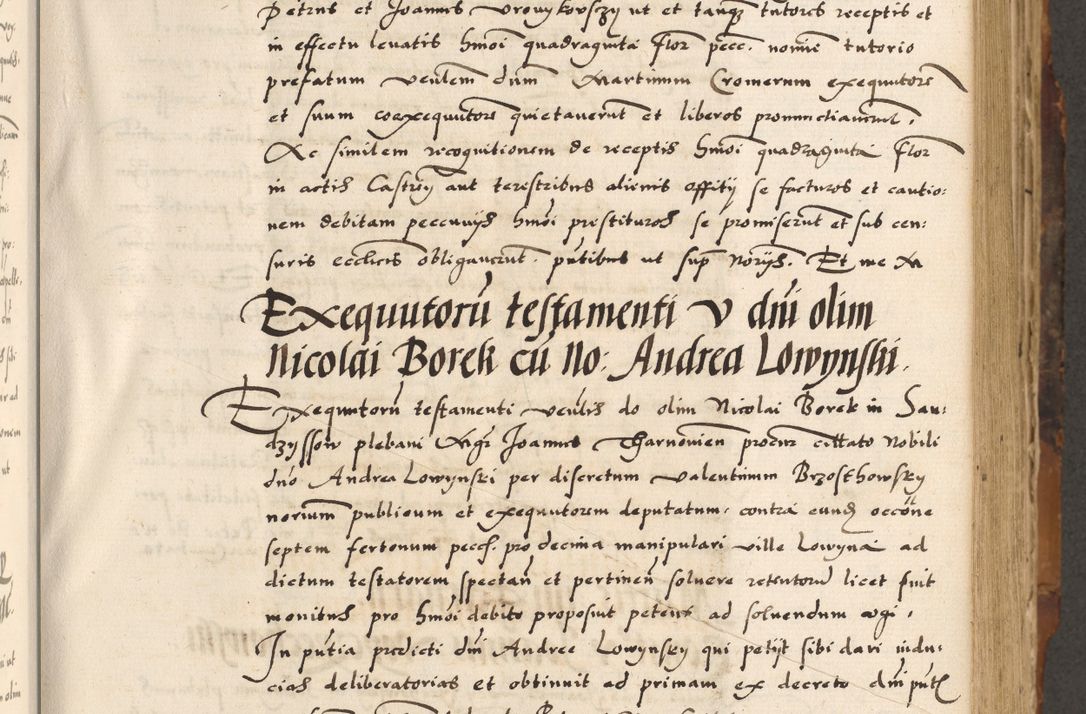 Petrus et Joannes Vrovykovsczy ut et tanq tutores receptis et
in effectu levatis hmoi quadraginta flor pecc. nomine tutorio
prefatum venlem dnm Martinum Cromerum exequutores
et suum coexequutore quietaverut et liberos pronunctiaverut.
Ac similem recognitionem de receptis hmoi quadraginta flor
in actis Castren aut terestribus alienis offitij se facturos et cautio:
nem debitam peccuniis hmoi prestituros se promiserut et sub cen:
suris ecclicis obligaverut. putibus ut sup Norijs. Et me M
Exequutoru testamenti V dni olim
Nicolai Borek cu No: Andrea Lowynski.
Exequutoru testamenti venlis do olim Nicolai Borek in San:
dzyssow plebani Mgri Joannes Tharnovien procur cittato Nobili
dno Andrea Lowynski per discretum Valentinum Brzosthowsky
norium publicum et exequutorem deputatum. contra eund occone
septem fertonum pecc. pro decima manipulari ville Lowyna ad
dictum testatorem spectan et pertinen solvere retentoru licet fuit
monitus pro hmoi debito proposuit petens ad solvendum cogi.
In putia predicti dni Andree Lowynsky qui petijt sibi dari indu:
cias deliberatorias et obtinuit ad primam ex decreto dni putis